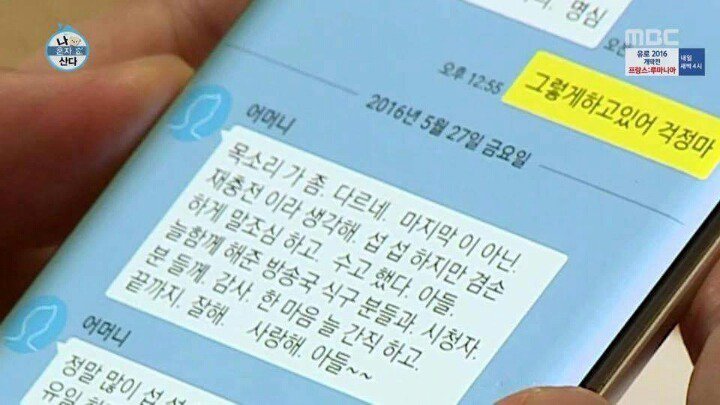 나
혼자 산다
MBC
유로 2016
개막전
프랑스:루마니아
내일
새벽 4시
명심
오후 12:55
그렇게하고있어 걱정마
2016년 5월 27일 금요일
어머니
목소리 가 좀. 다르네. 마지막 이 아닌.
재충전 이라 생각해. 섭 섭 하지만 겸손
하게 말조심 하고. 수고 했다. 아들.
늘함께 해준 방송국 식구 분들과. 시청자.
분 들께. 감사. 한 마음 늘 간직 하고.
끝까지. 잘해. 사랑해. 아들~~
어머니
정말 많이 섭 섭
유일